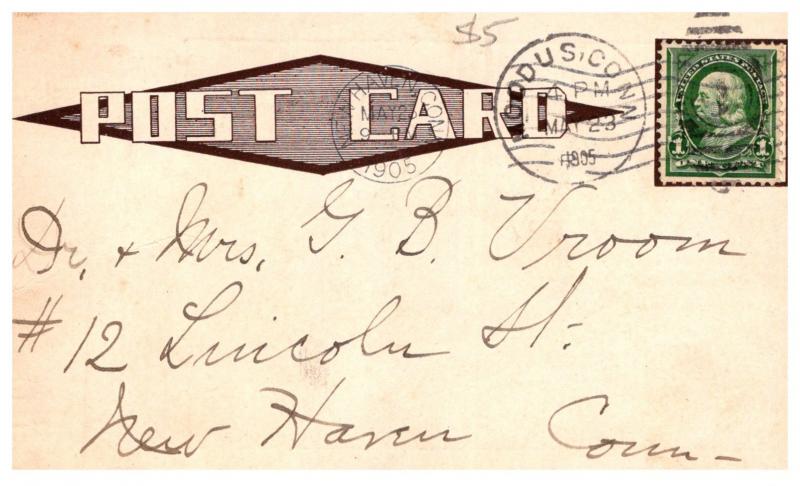 $5
POST CARD
NEW HAVEN CONN
MAY 23
1905
MOODUS, CONN
4 PM
MAY 23
1905
UNITED STATES POSTAGE
1 1
ONE CENT
Dr, & Mrs, G. B. Vroom
#12 Lincoln St.
New Haven Conn-